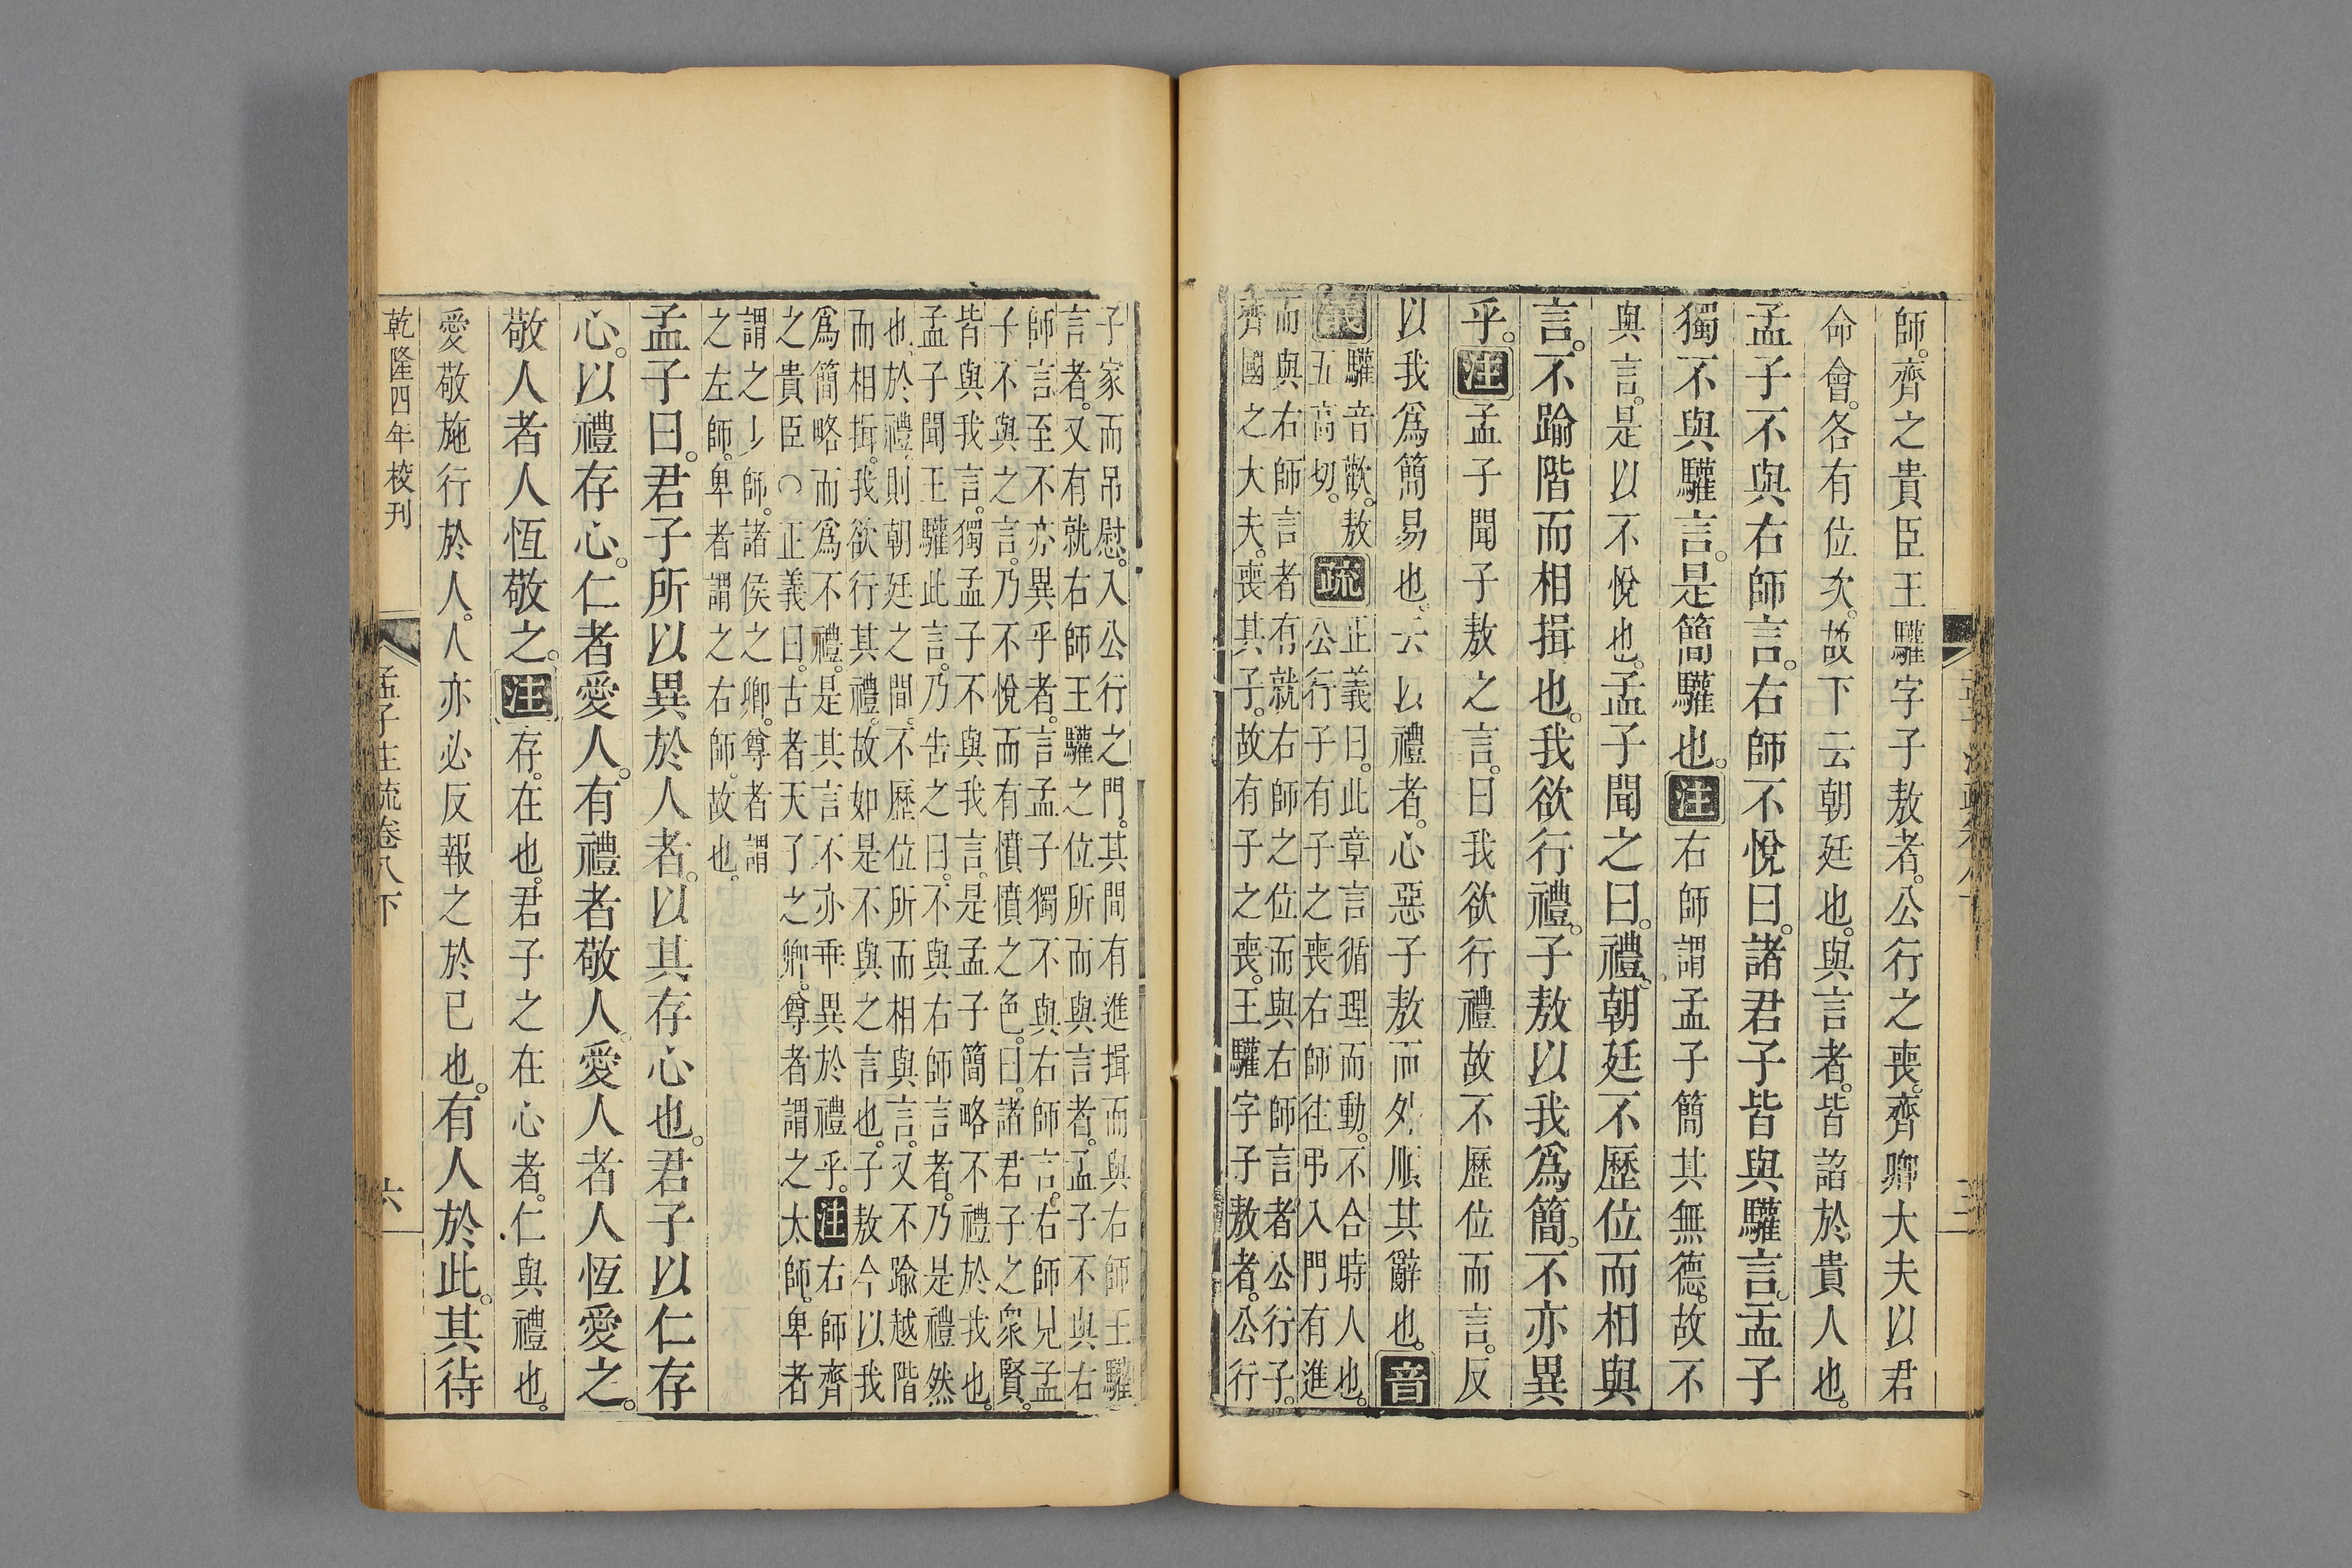 師。齊之貴臣王驩字子敖者。公行之喪。齊卿大夫以君
命會。各有位次。故下云朝廷也。與言者。皆諂於貴人也。
孟子不與右師言。右師不悅曰。諸君子皆與驩言。孟子
獨不與驩言。是簡驩也。注右師謂孟子簡其無德。故不
與言。是以不悅也。孟子聞之曰。禮。朝廷不歷位而相與
言。不踰階而相揖也。我欲行禮。子敖以我爲簡。不亦異
乎。注孟子聞子敖之言。曰我欲行禮故不歷位而言。反
以我爲簡易也。云以禮者。心惡子敖而外順其辭也。音
義驩音歡。敖
五高切。疏正義曰。此章言循理而動。不合時人也。
公行子有子之喪右師往弔入門有進
而與右師言者有就右師之位而與右師言者公行子。
齊國之大夫。喪其子。故有子之喪。王驩字子敖者。公行
子家而吊慰。入公行之門。其間有進揖而與右師王驩
言者。又有就右師王驩之位所而與言者。孟子不與右
師言至不亦異乎者。言孟子獨不與右師言。右師見孟
子不與之言。乃不悅而有憤憤之色。曰。諸君子之衆賢。
皆與我言。獨孟子不與我言。是孟子簡略不禮於我也。
孟子聞王驩此言。乃告之曰。不與右師言者。乃是禮然
也。於禮。則朝廷之間。不歷位所而相與言。又不踰越階
而相揖。我欲行其禮。故如是不與之言也。子敖今以我
爲簡略而爲不禮。是其言不亦乖異於禮乎。注右師齊
之貴臣○正義曰。古者天子之卿。尊者謂之太師。卑者
謂之少師。諸侯之卿。尊者謂
之左師。卑者謂之右師。故也。
孟子曰。君子所以異於人者。以其存心也。君子以仁存
心。以禮存心。仁者愛人。有禮者敬人。愛人者人恆愛之。
敬人者人恆敬之。注存。在也。君子之在心者。仁與禮也。
愛敬施行於人。人亦必反報之於已也。有人於此。其待
乾隆四年校刊
孟子注疏卷八下
六